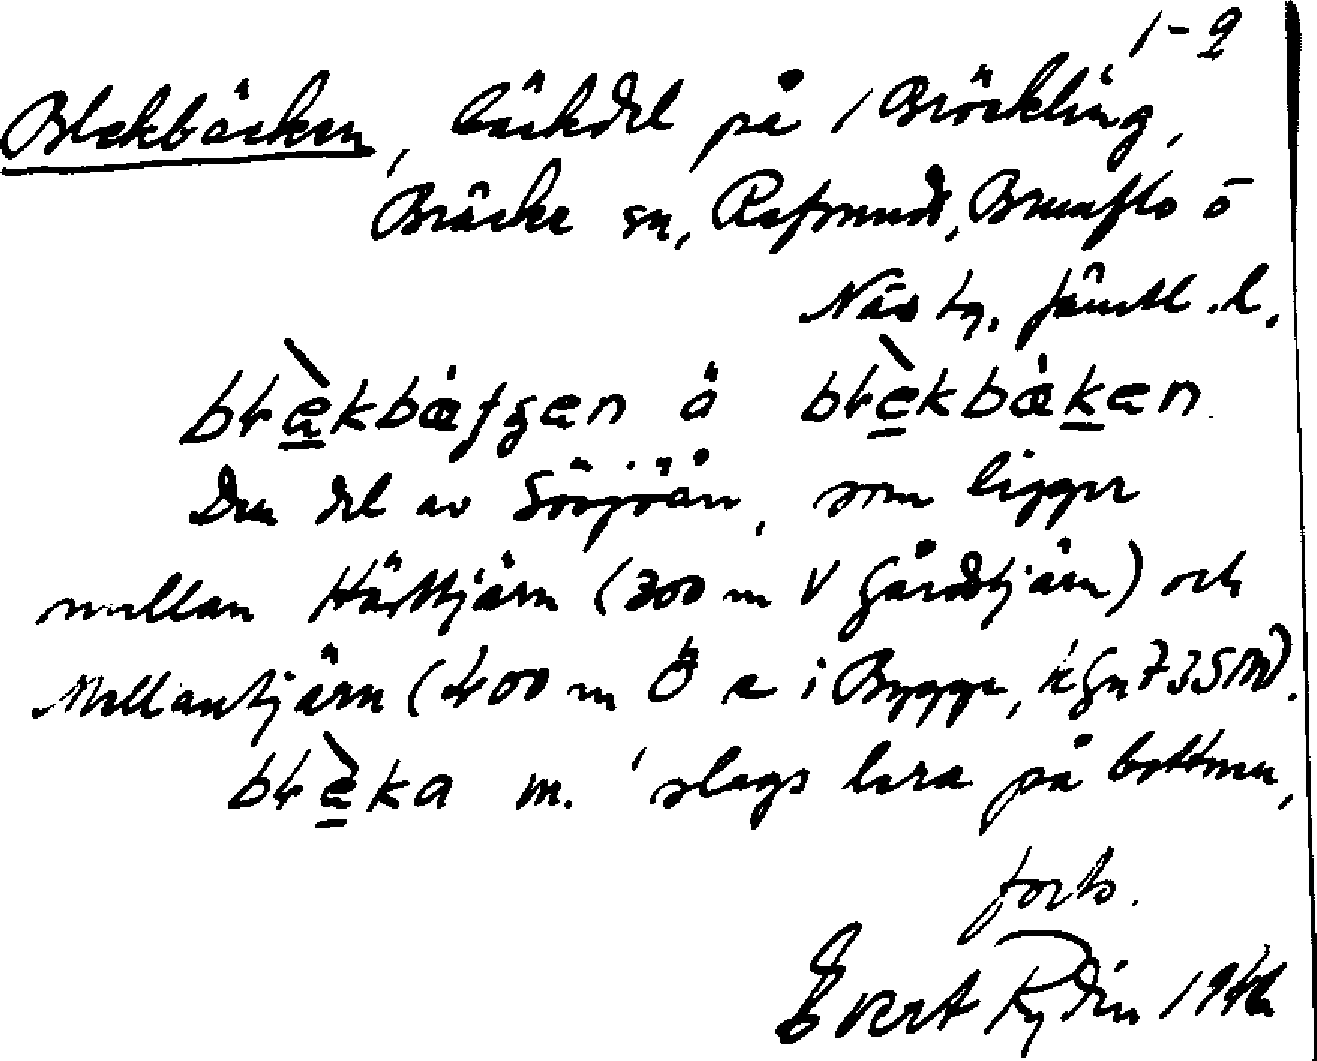 1-2
Blekbäcken, bäckdel på / Bräckling,
Bräcke sn, Refsund, Brunflo ö
Näs tg. Jämtl. l.
blekbäfgen å blekbäken.
Den del av Sörsjöån, som ligger
mellan Härktjärn (300 m V Gårdstjärn) och
Mellantjärn (400 m Ö a i Bygge, kGn 735M).
bleka m. 'slags lera på bottnen,
forts.
Evert Rydin 1946